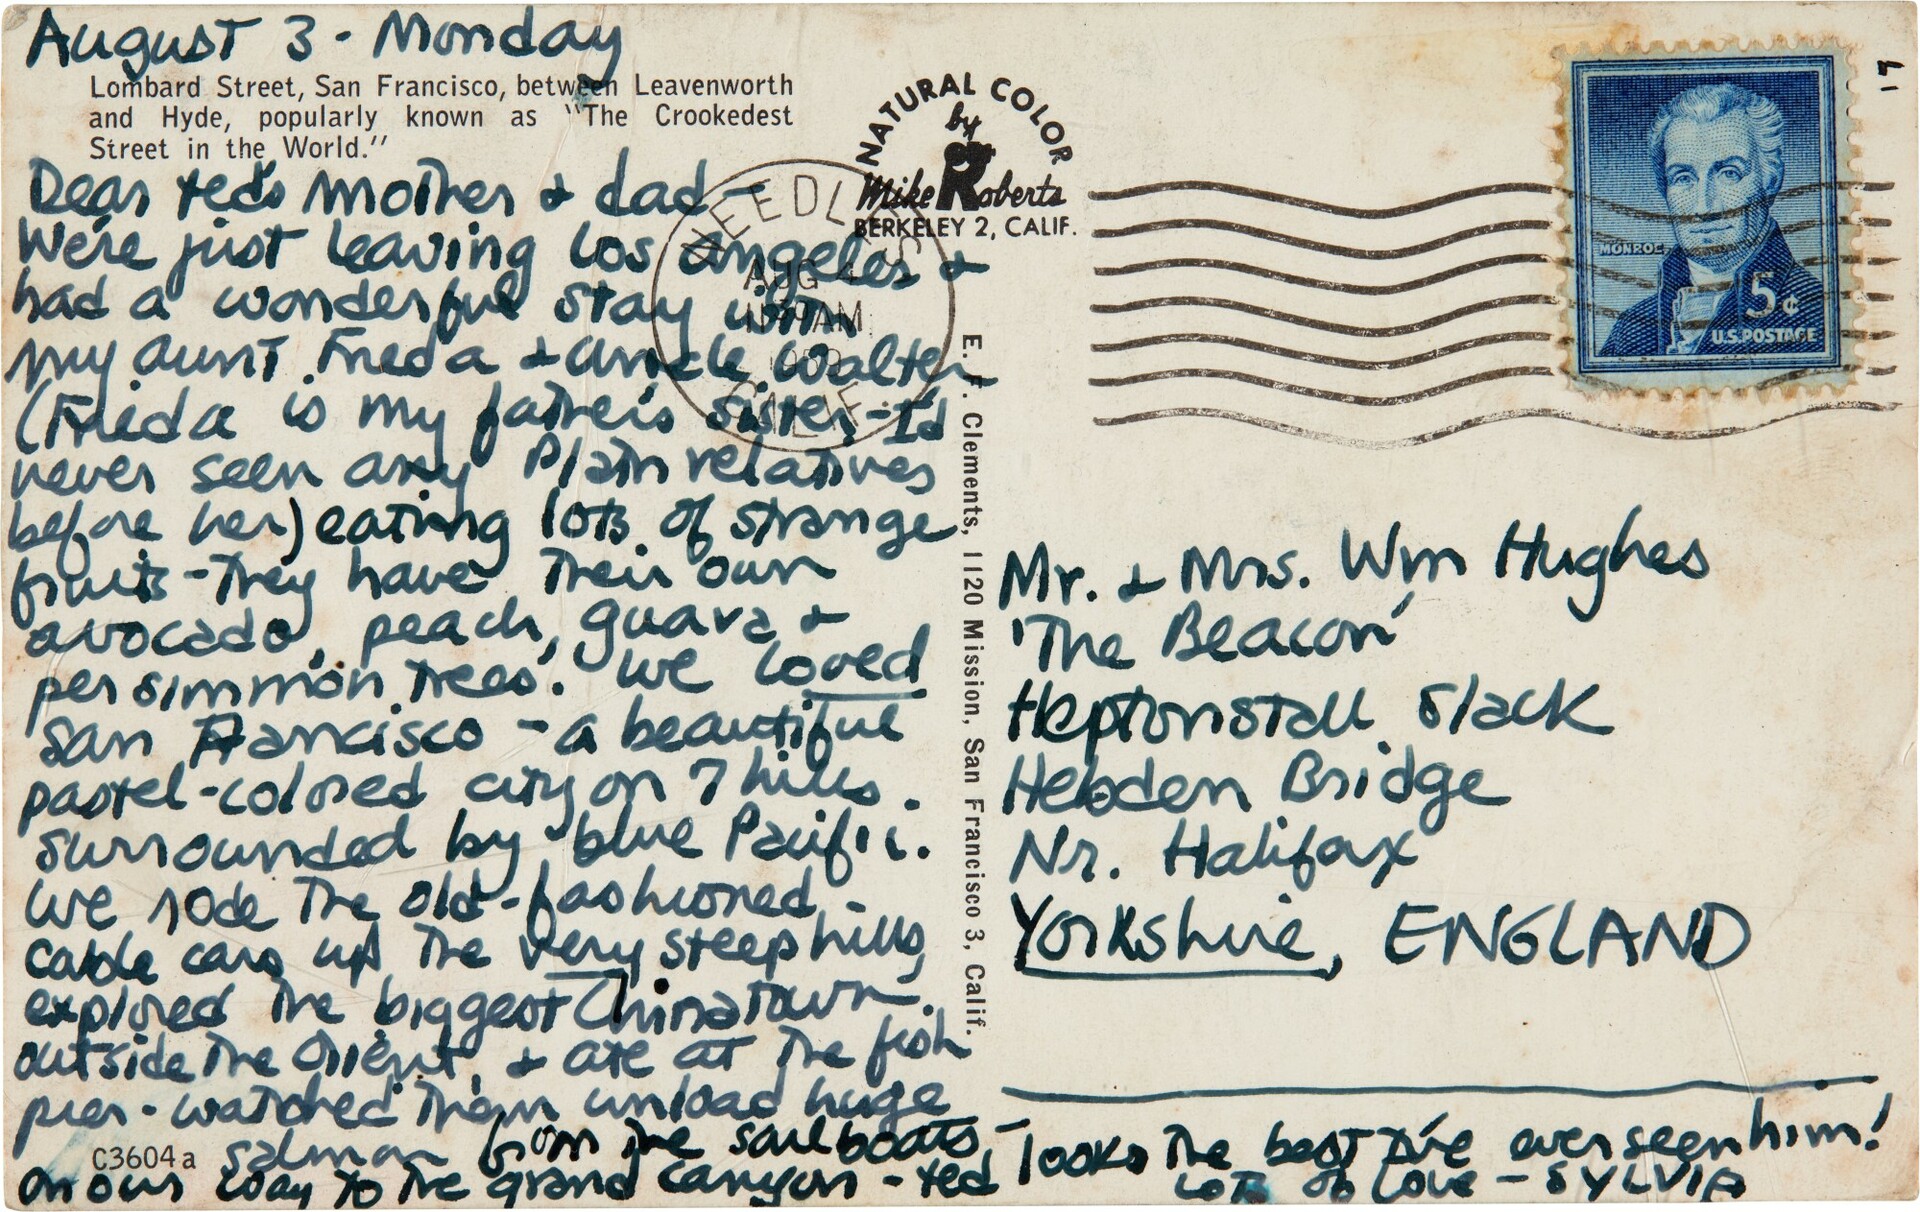 August 3 - Monday
Lombard Street, San Francisco, between Leavenworth
and Hyde, popularly known as "The Crookedest
Street in the World."
Dear Ted's mother & dad -
We're just leaving Los Angeles &
had a wonderful stay with
my aunt Frieda & uncle Walter
(Frieda is my father's sister - I'd
never seen any Plath relatives
before her) eating lots of strange
fruits - They have their own
avocado, peach, guava &
persimmon trees. We loved
San Francisco - a beautiful
pastel-colored city on 7 hills
surrounded by blue Pacific.
We rode the old-fashioned
cable cars up the very steep hills,
explored the biggest Chinatown
outside the Orient, & ate at the fish
pier - watched them unload huge
salmon from the sailboats -
C3604a
on our way to the grand canyon - Ted
looks the best I've ever seen him!
Lots of love - SYLVIA
NATURAL COLOR
by
Mike Roberts
BERKELEY 2, CALIF.
NEEDLES
AUG 4
AM
CALIF.
E. F. Clements, 1120 Mission, San Francisco 3, Calif.
MONROE
5¢
U.S. POSTAGE
19
Mr. & Mrs. Wm Hughes
'The Beacon'
Heptonstall Slack
Hebden Bridge
Nr. Halifax
Yorkshire, ENGLAND